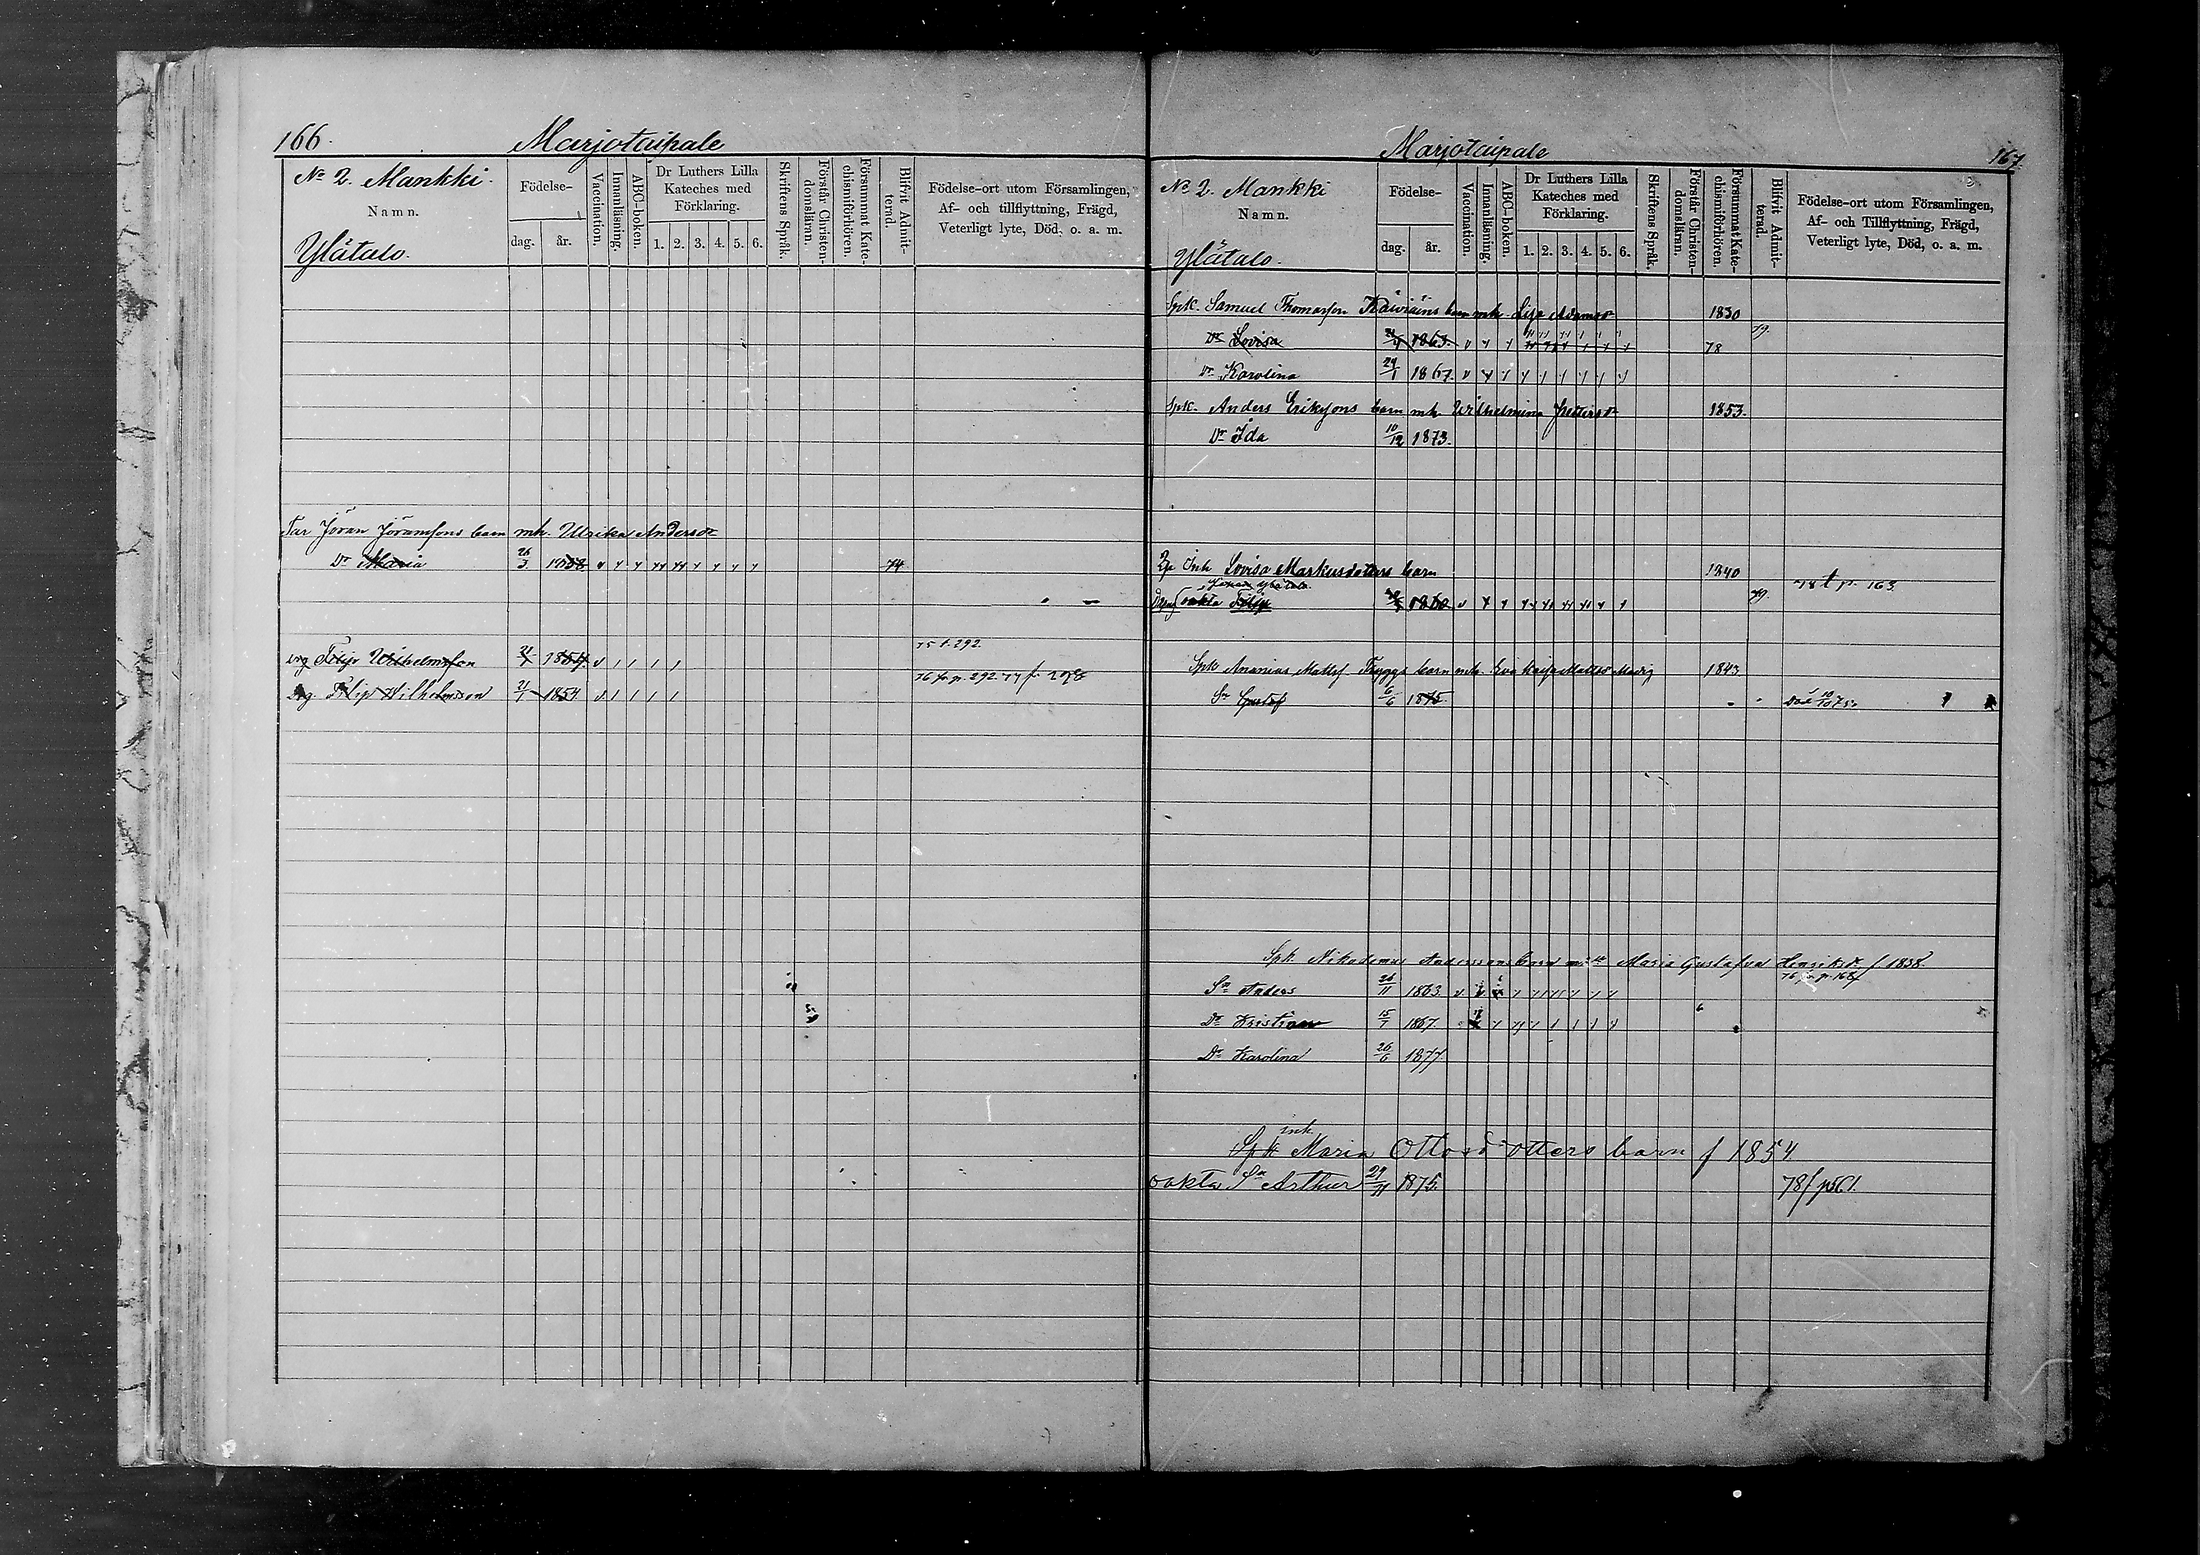 166.
Marjotaipale
No 2. Mankki.
Namn.
Ylätalo.
Födelse-
dag.
år.
Vaccination.
Innanläsning.
ABC-boken.
Dr Luthers Lilla Kateches med Förklaring.
1. 2. 3. 4. 5. 6.
Skriftens Språk.
Förstår Christendomsläran.
Försummat Katechismiförhören.
Blifvit Admitterad.
Födelse-ort utom Församlingen,
Af- och tillflyttning, Frägd,
Veterligt lyte, Död, o. a. m.
Jöran Jöransons barn mh. Ulrika Andersdr
Dr Maria 26/3 74
75 t. 292
Filip Wilhelmsson 1854
76 fr. p. 292
Drg. Filip Wilhelmsson 21/1 1854
Marjotaipale
167
No 2. Mankki
Namn.
Ylätalo.
Födelse-
dag.
år.
Vaccination.
Innanläsning.
ABC-boken.
Dr Luthers Lilla Kateches med Förklaring.
1. 2. 3. 4. 5. 6.
Skriftens Språk.
Förstår Christendomsläran.
Försummat Katechismiförhören.
Blifvit Admitterad.
Födelse-ort utom Församlingen,
Af- och Tillflyttning, Frägd,
Veterligt lyte, Död, o. a. m.
Spk. Samuel Thomasson barn mh. Lisa Adamsdr 1830
Dr Lovisa 1863. 78 79.
Dr Karolina 24/1 1867.
Spk. Anders Eriksons barn mh Wilhelmina 1853.
Dr Ida 10/12 1873.
Inh Lovisa Markusdotters barn 1840
oäkta Filip 1860 79. 78 t p. 163
Spk Ananias Matts. Trygga barn mh. Eva Kajsa Mattsdr 1843
Sn Gustaf 6/6 1875. Död 10/10 75.
Spk. Nikodemus Anderssons barn m. Maria Gustafva Henriksdr f 1838.
76 fr p. 168
Sn Anders 26/11 1863
Dr Kristina 15/7 1867.
Dr Karolina 26/6 1877
inh.
Spk Maria Ottosdotters barn f 1854
oäkta Sn Arthur 29/11 1875. 78 f p561.